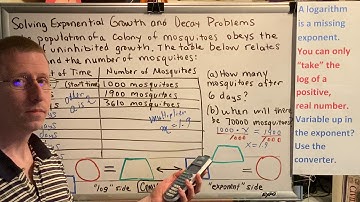 Solving Exponential Growth and Decay Problems
population of a colony of mosquitoes obeys the
of uninhibited growth. The table below relates
and the number of mosquitoes:
t of Time
Number of Mosquitoes
start
1000 mosquitoes
after
1900 mosquitoes
3610 mosquitoes
days
days
days
multiplier
= 1.9
(a) How many
mosquitoes after
6 days?
(b) When will there
be 70000 mosquitoes
1000·x = 1900
1000
1000
x = 1.9
"log" side
"exponent" side
EXPO
A logarithm
is a missing
exponent.
You can only
"take" the
log of a
positive,
real number.
Variable up in
the exponent?
Use the
converter.